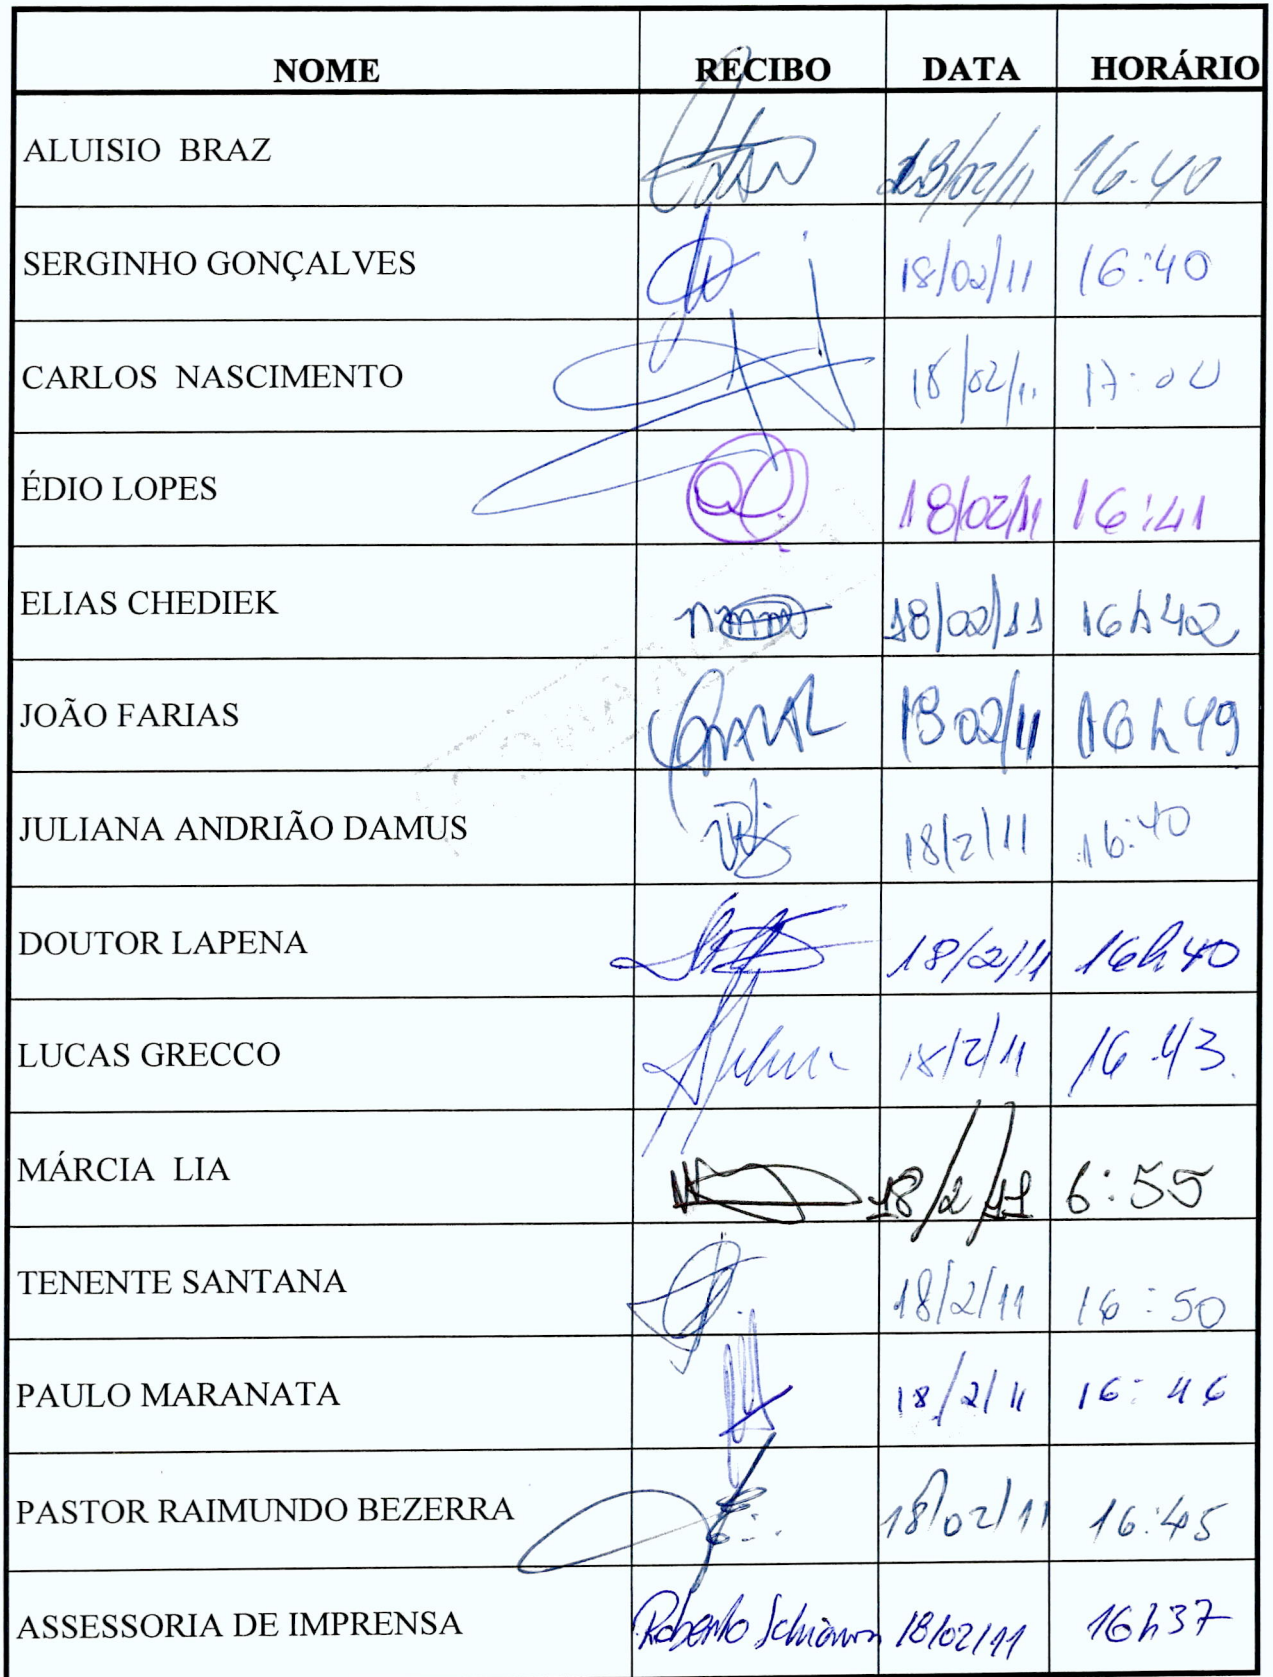 NOME RECIBO DATA HORÁRIO
ALUISIO BRAZ 16:40
SERGINHO GONÇALVES 18/02/11 16:40
CARLOS NASCIMENTO 18/02/11 17:00
ÉDIO LOPES 18/02/11 16:41
ELIAS CHEDIEK 18/02/11 16h42
JOÃO FARIAS 18 02/11 16h49
JULIANA ANDRIÃO DAMUS 18/2/11 16:40
DOUTOR LAPENA 18/2/11 16h40
LUCAS GRECCO 18/2/11 16:43.
MÁRCIA LIA 18/2/11 6:55
TENENTE SANTANA 18/2/11 16:50
PAULO MARANATA 18/2/11 16:46
PASTOR RAIMUNDO BEZERRA 18/02/11 16:45
ASSESSORIA DE IMPRENSA Roberto 18/02/11 16h37